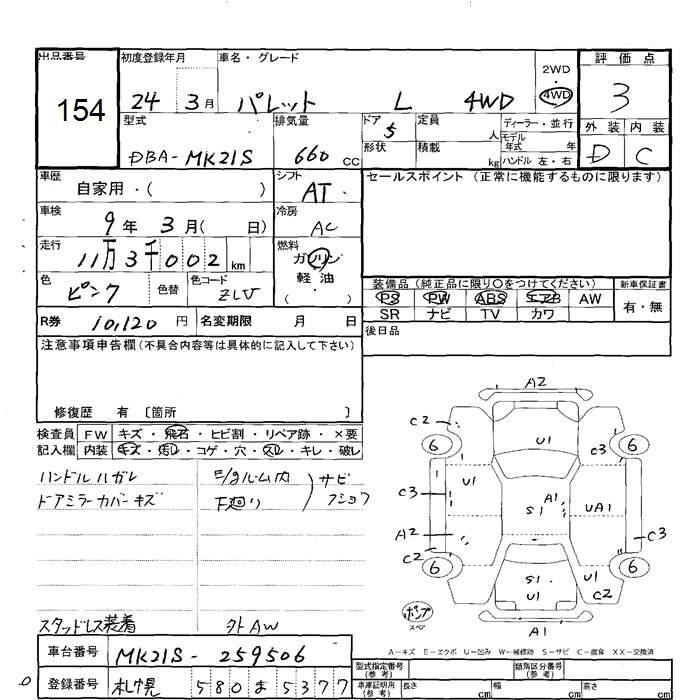 出品番号 154
初度登録年月 24 3月
車名・グレード パレット L 4WD
2WD・4WD
評価点 3
外装 内装
D C
型式 DBA-MK21S
排気量 660 CC
ドア 5
形状
定員 人
積載 kg
ディーラー・並行
モデル年式 年
ハンドル 左・右
車歴 自家用・( )
シフト AT
セールスポイント (正常に機能するものに限ります)
車検 9年 3月( 日)
冷房 AC
走行 11万3千002 km
燃料 ガソリン 軽油 ( ・ )
色 ピンク 色替 色コード ZLV
装備品(純正品に限り○をつけてください) 新車保証書
PS PW ABS エアB AW 有・無
SR ナビ TV カワ
R券 10,120 円 名変期限 月 日
後日品
注意事項申告欄(不具合内容等は具体的に記入して下さい)
修復歴 有 〔箇所 〕
検査員 FW キズ・飛石・ヒビ割・リペア跡・×要
記入欄 内装 キズ・汚レ・コゲ・穴・スレ・キレ・破レ
ハンドルハガレ E/gルーム内 サビ
ドアミラーカバーキズ 下廻り
スタッドレス装着 外AW
A2
C2 6 U1 C3 6
U1
C3 A1 UA1
S1
A2 C3
C2 6 S1 U1 U1 6
C2
ポンプ
スペ
A1
A-キズ E-エクボ U-凹み W-補修跡 S-サビ C-腐食 XX-交換済
車台番号 MK21S-259506
型式指定番号(参考) 類別区分番号(参考)
登録番号 札幌 580 ま 5377
車庫証明用(参考) 長さ cm 幅 cm 高さ cm